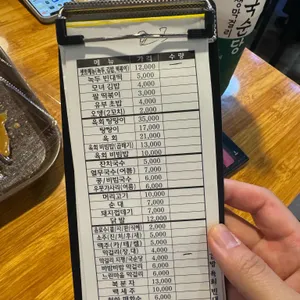 메 뉴 가 격 수 량
12,000
녹두 빈대떡 5,000
모녀 김밥 4,000
팥 떡볶이 3,000
유부 초밥 4,000
오뎅(2꼬치) 2,000
육회 탕탕이 35,000
탕탕이 17,000
육 회 21,000
육회 비빔밥(곱빼기) 13,000
육회 비빔밥 10,000
잔치국수 5,000
열무국수(여름) 7,000
콩/비빔국수 6,000
6,000
머리고기 10,000
순 대 7,000
돼지껍데기 7,000
닭 발 12,000
2,000
5,000
맥주(카/테/켈) 5,000
막걸리(장 대) 4,000
막걸리 5,000
막걸리 6,000
느린마을 막걸리 6,000
복 분 자 13,000
백 세 주 10,000